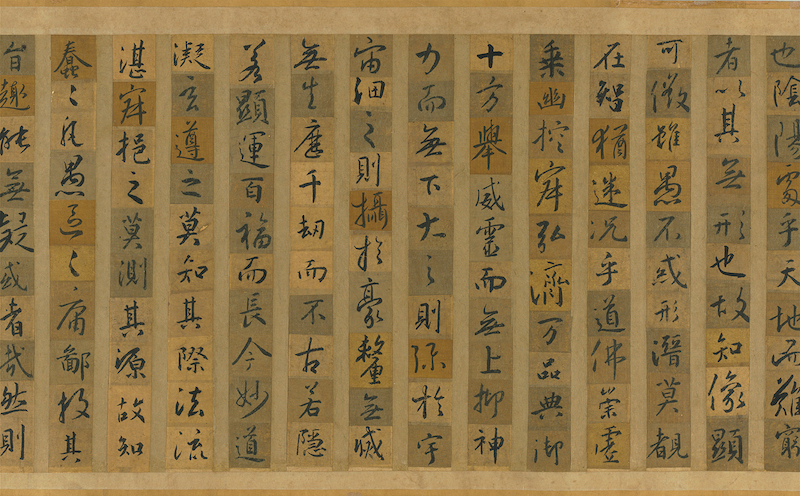 也陰陽處乎天地而難窮
者以其无形也故知像顯
可徵雖愚不惑形潛莫覩
在智猶迷況乎道佛崇虛
乘幽控寂弘濟万品典御
十方舉威靈而無上抑神
力而無下大之則弥於宇
宙細之則攝於豪釐無滅
無生歷千劫而不古若隱
若顯運百福而長今妙道
凝玄遵之莫知其際法流
湛寂挹之莫測其源故知
蠢々凡愚區々庸鄙投其
旨趣能無疑或者哉然則